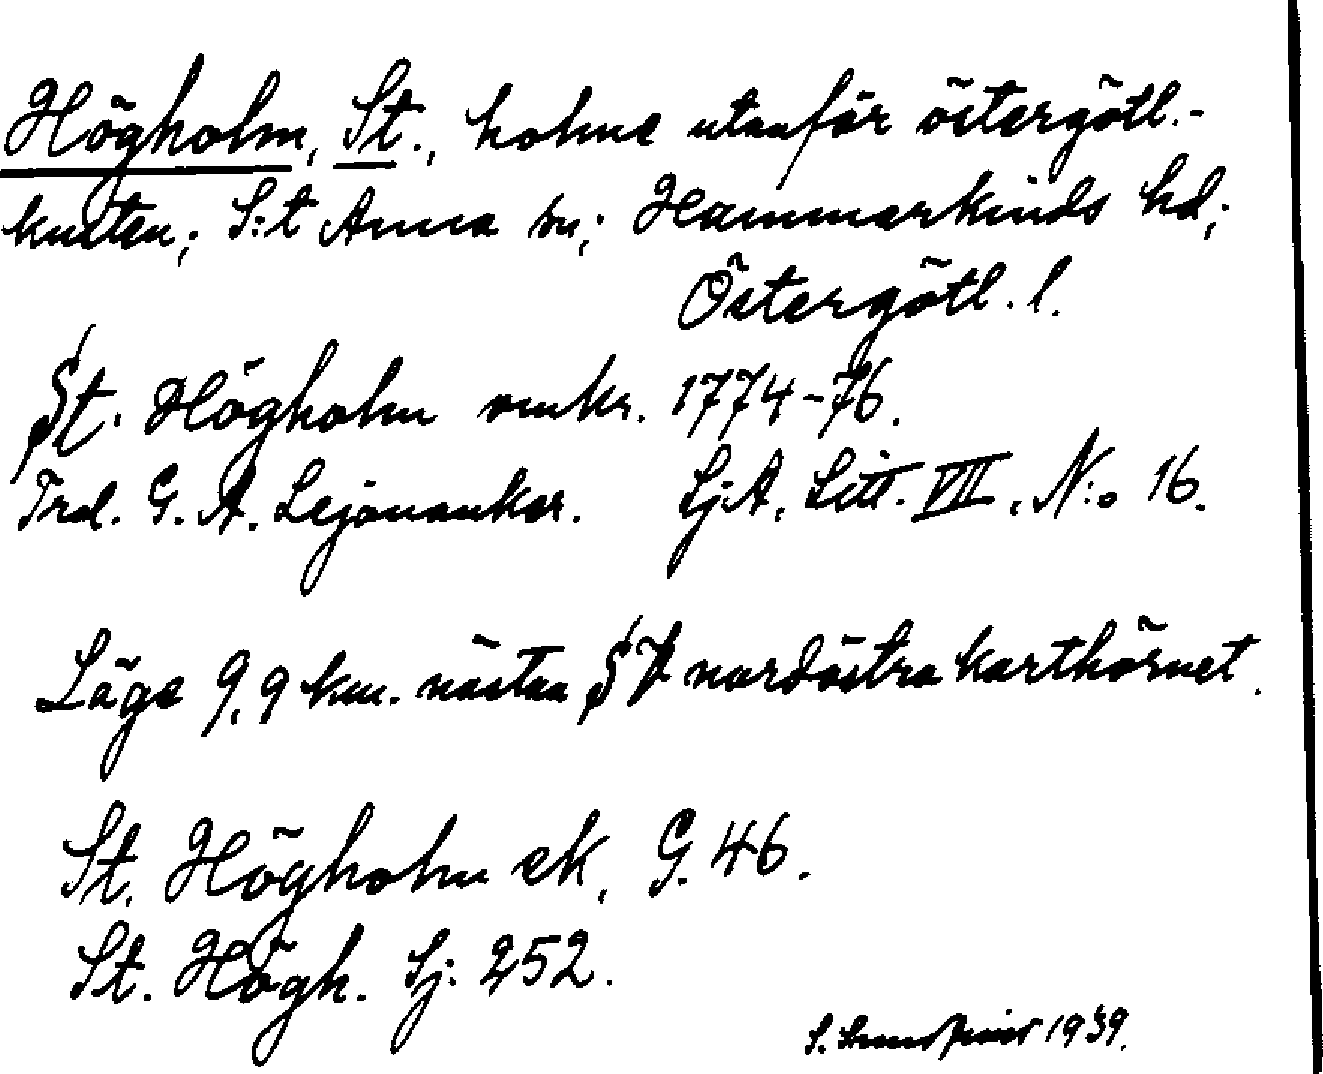 Högholm, St., holme utanför östergötl.-
kusten; S:t Anna sn; Hammarkinds hd;
Östergötl. l.
St. Högholm omkr. 1774-76.
Trol. G. A. Lejonankar. Sj.A. Litt. VII, N:o 16.
Läge 9,9 km. nästan S V nordöstra karthörnet.
St. Högholm ek. G. 46.
St. Högh. Sj: 252.
S. 1939.